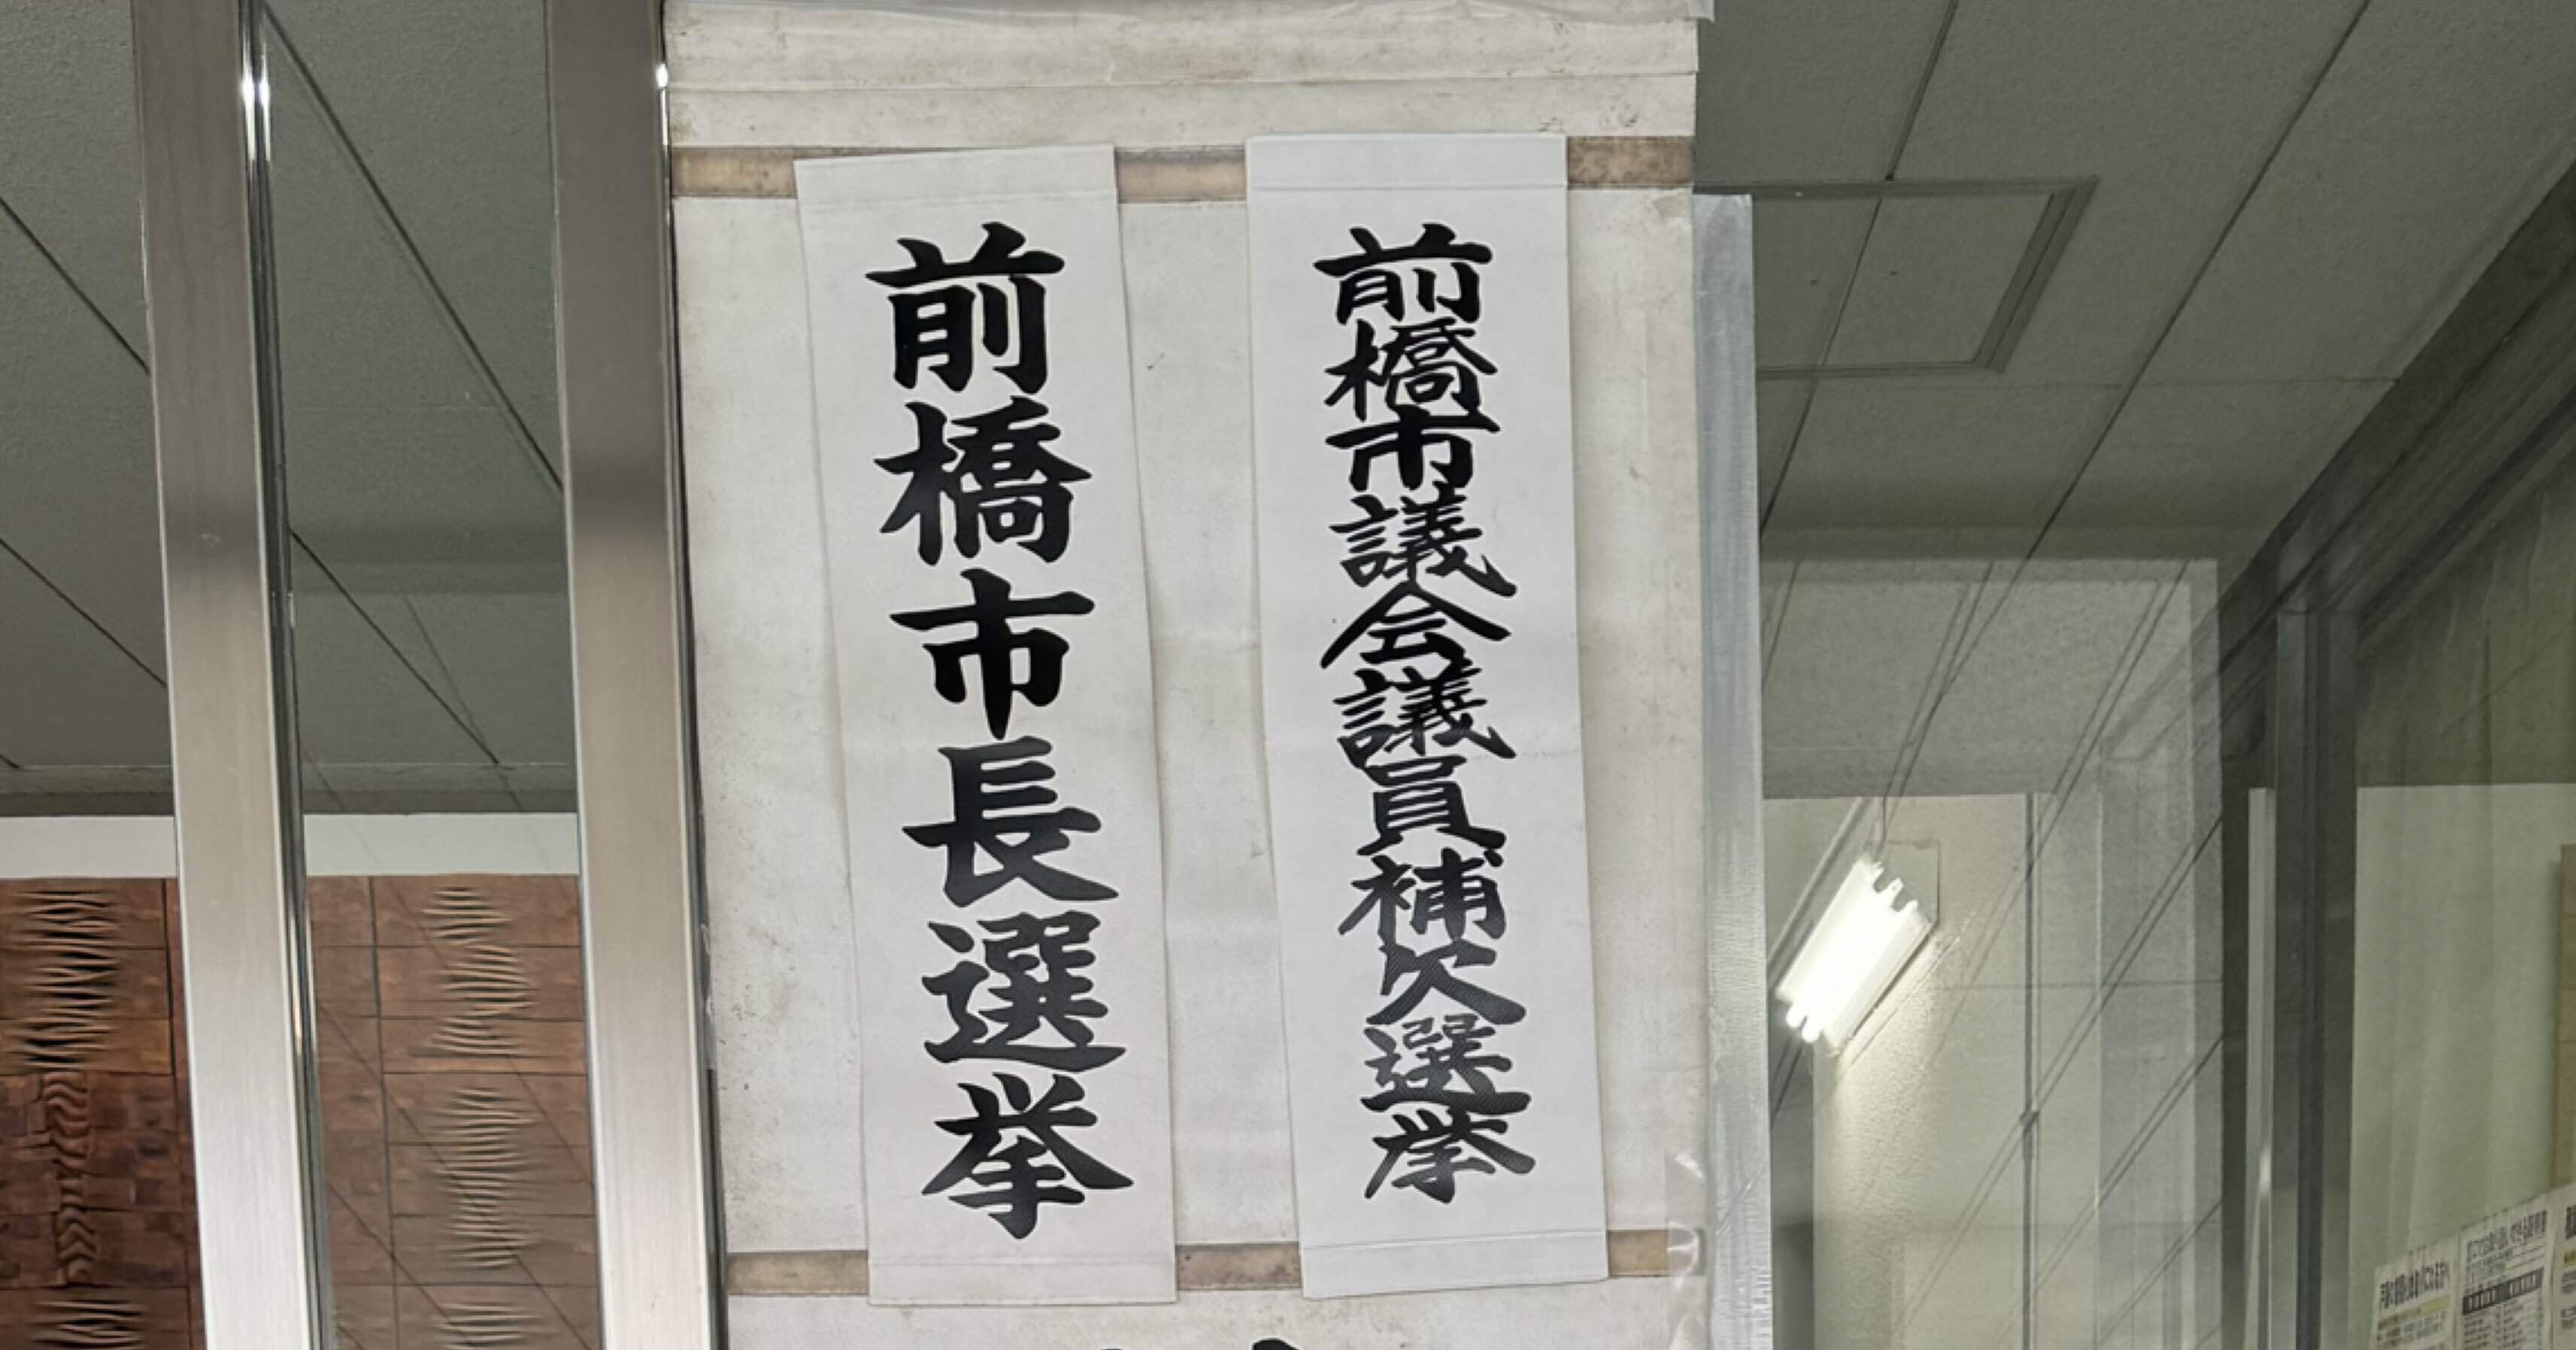 前橋市議会議員補欠選挙
前橋市長選挙